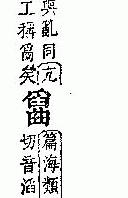 與亂同亢
工稱爲矣
篇海類
切音滔